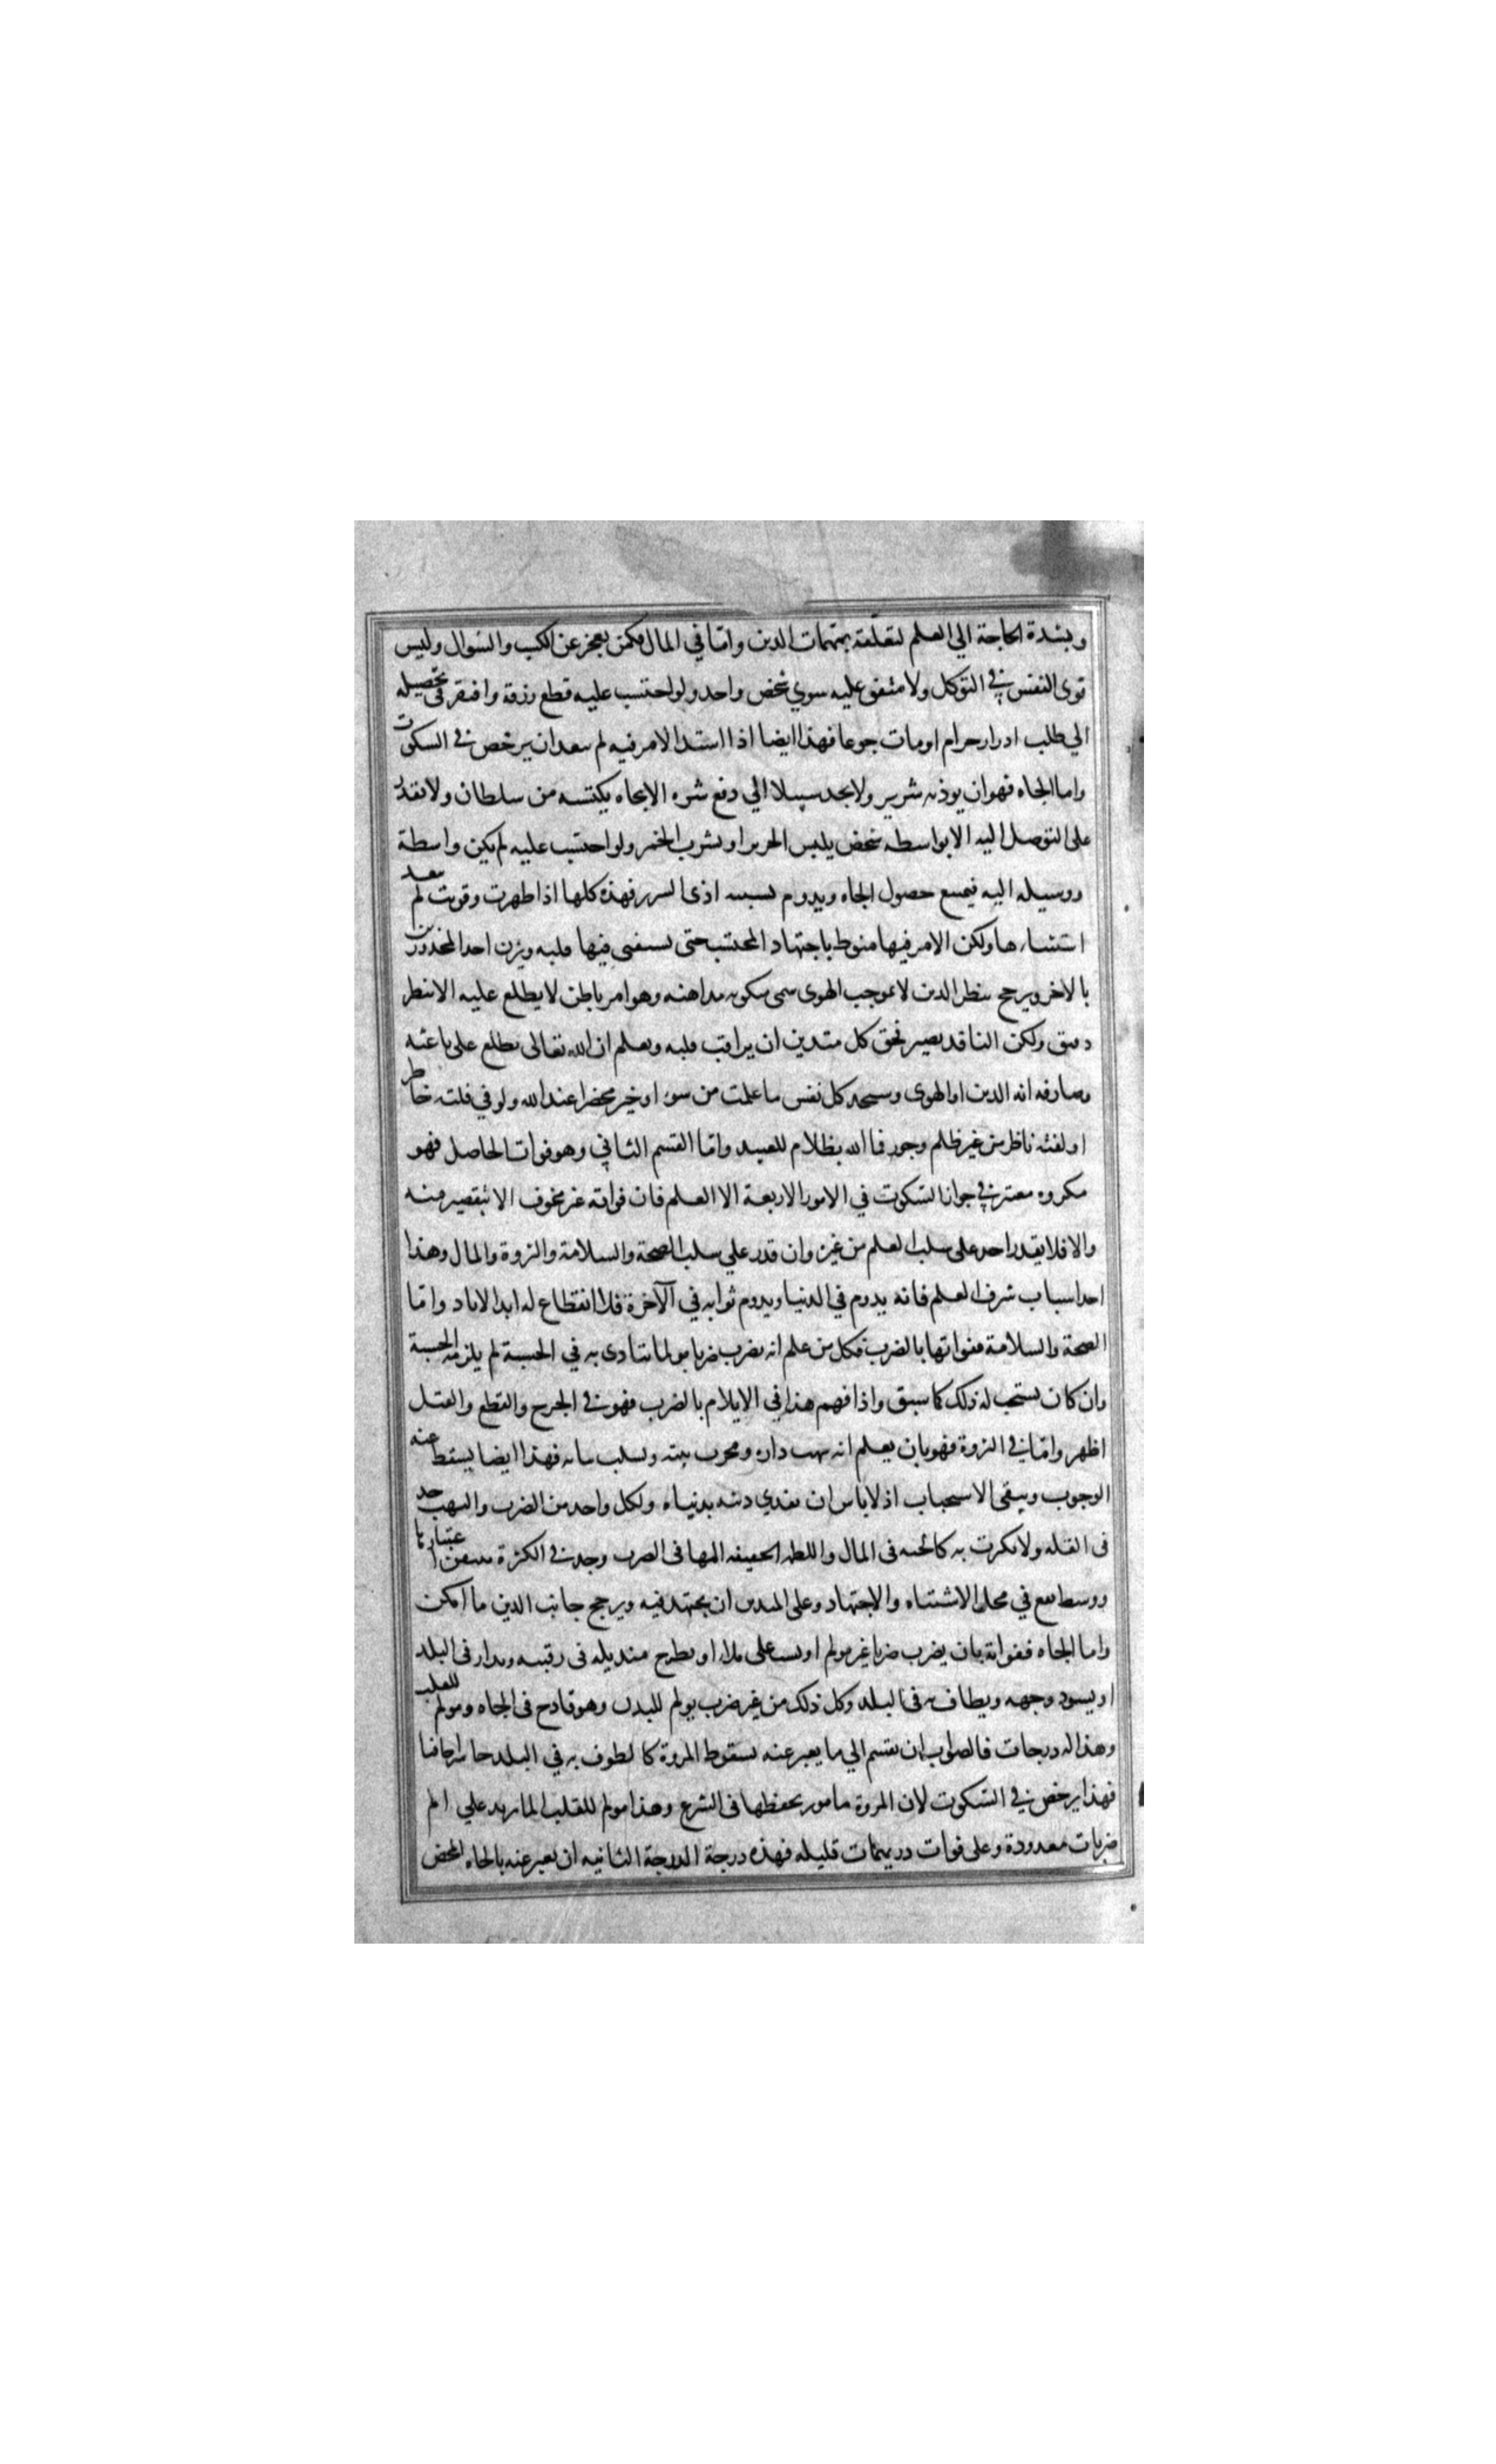 وبشدة الحاجة الي العلم لتعلّقه بمهمات الدين وامّا في المال فكمن يعجز عن الكسب والسّوال وليس
قوى النفس في التوكل ولا منفق عليه سوي شخص واحد ولو احتسب عليه قطع رزقه وافتقر فى تحصيله
الي طلب ادرار حرام او مات جوعا فهذا ايضا اذا اشتد الامر فيه لم يبعد ان يرخص في السكوت
واما الجاه فهو ان يوذيه شرير ولا يجد سبيلا الي دفع شره الا بجاه يكتسبه من سلطان ولا يقدر
على التوصل اليه الا بواسطه شخص يلبس الحرير او يشرب الخمر ولو احتسب عليه لم يكن واسطة
ووسيله اليه فيمتنع حصول الجاه ويدوم بسببه اذى الشرير فهذه كلها اذا ظهرت وقويت لم يبعد
استثناءها ولكن الامر فيها منوط باجتهاد المحتسب حتى يستفتي فيها قلبه ويزن احد المحذورين
بالاخر ويرجح بنظر الدين لا بموجب الهوى سمى سكوته مداهنه وهو امر باطن لا يطلع عليه الا بنظر
دقيق ولكن الناقد بصير فحق كل متدين ان يراقب قلبه ويعلم ان الله تعالى مطلع على باعثه
وصارفه انه الدين او الهوى وستجد كل نفس ما عملت من سوء او خير محضرا عند الله ولو في فلتة خاطر
او لفتة ناظر من غير ظلم وجور فما الله بظلام للعبيد وامّا القسم الثاني وهو فوات الحاصل فهو
مكروه معتبر في جواز السّكوت في الامور الاربعة الا العلم فان فواته غير مخوف الا بتقصير منه
والا فلا يقدر احد على سلب العلم من غيره وان قدر علي سلب الصحة والسلامة والثروة والمال وهذا
احد اسباب شرف العلم فانه يدوم في الدنيا ويدوم ثوابه في الآخرة فلا انقطاع له ابد الاباد وامّا
الصحة والسلامة ففواتها بالضرب فكل من علم انه يضرب ضربا مولما يتاذى به في الحسبة لم يلزمه الحسبة
وان كان يستحب له ذلك كما سبق واذا فهم هذا في الايلام بالضرب فهو في الجرح والقطع والقتل
اظهر وامّا في الثروة فهو بان يعلم انه ينهب داره ويخرب بيته ويسلب ثيابه فهذا ايضا يسقط عنه
الوجوب ويبقى الاستحباب اذ لا باس ان يفدي دينه بدنياه ولكل واحد من الضرب والنهب حد
فى القله ولا يكترث به كالحبه فى المال واللطمه الخفيفه المها فى الضرب وحد في الكثرة يتيقن اعتباره
ووسط يقع في محل الاشتباه والاجتهاد وعلى المتدين ان يجتهد فيه ويرجح جانب الدين ما امكن
واما الجاه ففواته بان يضرب ضربا غير مولم او يسب على ملاء او يطرح منديله فى رقبته ويدار فى البلد
او يسود وجهه ويطاف به فى البلد وكل ذلك من غير ضرب يولم للبدن وهو قادح فى الجاه ومولم للقلب
وهذا له درجات فالصواب ان يقسم الي ما يعبر عنه بسقوط المروة كالطوف به في البلد حاسرا حافيا
فهذا يرخص في السّكوت لان المروة مامور بحفظها فى الشرع وهذا مولم للقلب الما يزيد علي الم
ضربات معدودة وعلى فوات دريهمات قليله فهذه درجة الدرجة الثانيه ان يعبر عنه بالجاه المحض